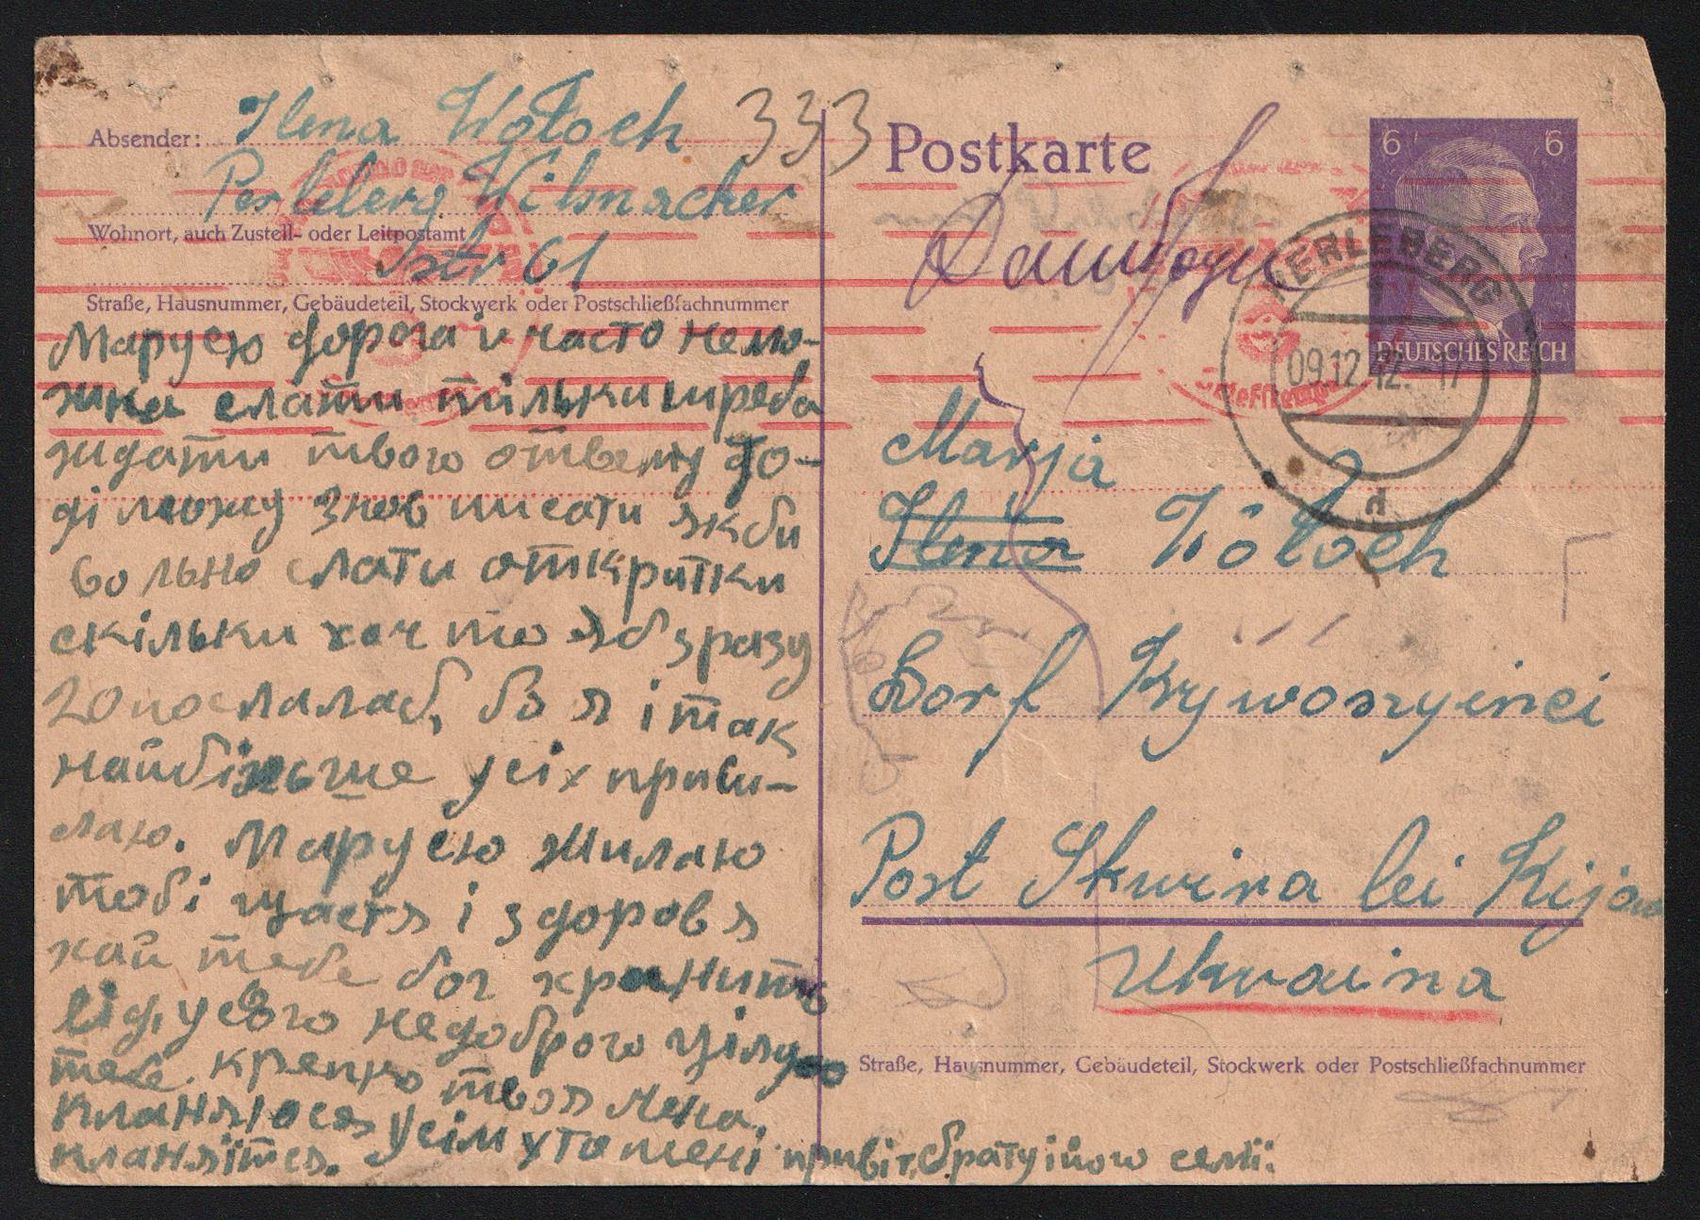 Absender: Ilena Wołoch 333
Perleberg Wilsnacker
Wohnort, auch Zustell- oder Leitpostamt
Str 61
Straße, Hausnummer, Gebäudeteil, Stockwerk oder Postschließfachnummer
Марусю дорога и часто немо-
жна слати тільки треба
ждати твого ответу То-
ді можу знов писати якби
вольно слати откритки
скільки хоч то яб зразу
20 послалаб, бо я і так
найбільше усіх приси-
лаю. Марусю жилаю
тобі щастя і здоровя
хай тебе бог хранить
від, усього недоброго цілую
тебе крепко твоя Лена.
кланяюся усім хто мені
кланяїтся. привіт, брату і його семї.
Postkarte
6 6
DEUTSCHES REICH
PERLEBERG
09.12.42.-17
d
Marja
Ilena Wołoch
Dorf Krywoszyinci
Post Skwira bei Kijow
Ukraina
Straße, Hausnummer, Gebäudeteil, Stockwerk oder Postschließfachnummer